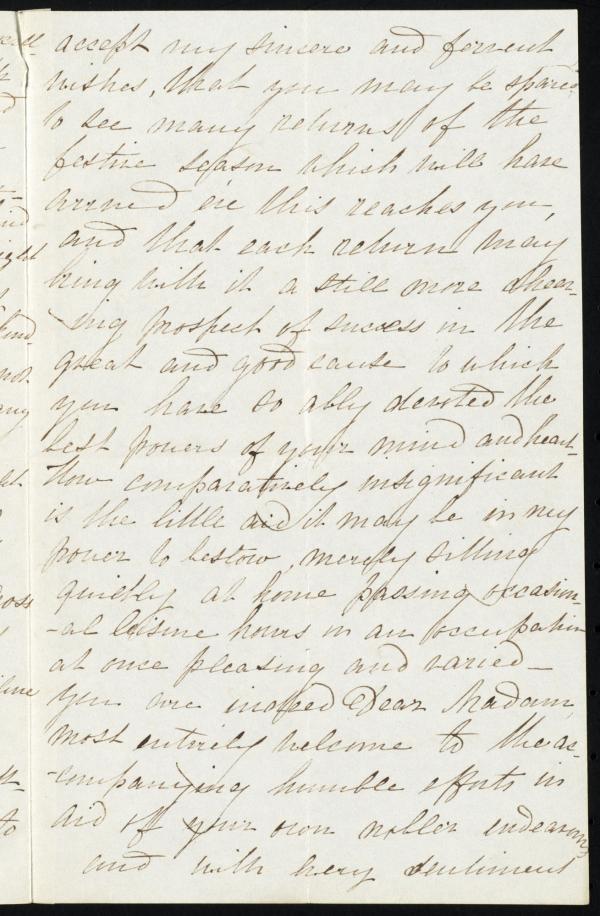 accept my sincere and fervent
wishes, that you may be spared
to see many returns of the
festive season which will have
arrived ere this reaches you,
and that each return may
bring with it a still more chear-
-ing prospect of success in the
great and good cause to which
you have so ably devoted the
best powers of your mind and heart_
How comparatively insignificant
is the little aid it may be in my
power to bestow, merely sitting
quietly at home passing occasion-
-al leisure hours in an occupation
at once pleasing and varied_
You are indeed Dear Madam,
most entirely welcome to the ac-
-companying humble efforts in
aid of your own nobler endeavours
and with every sentiment